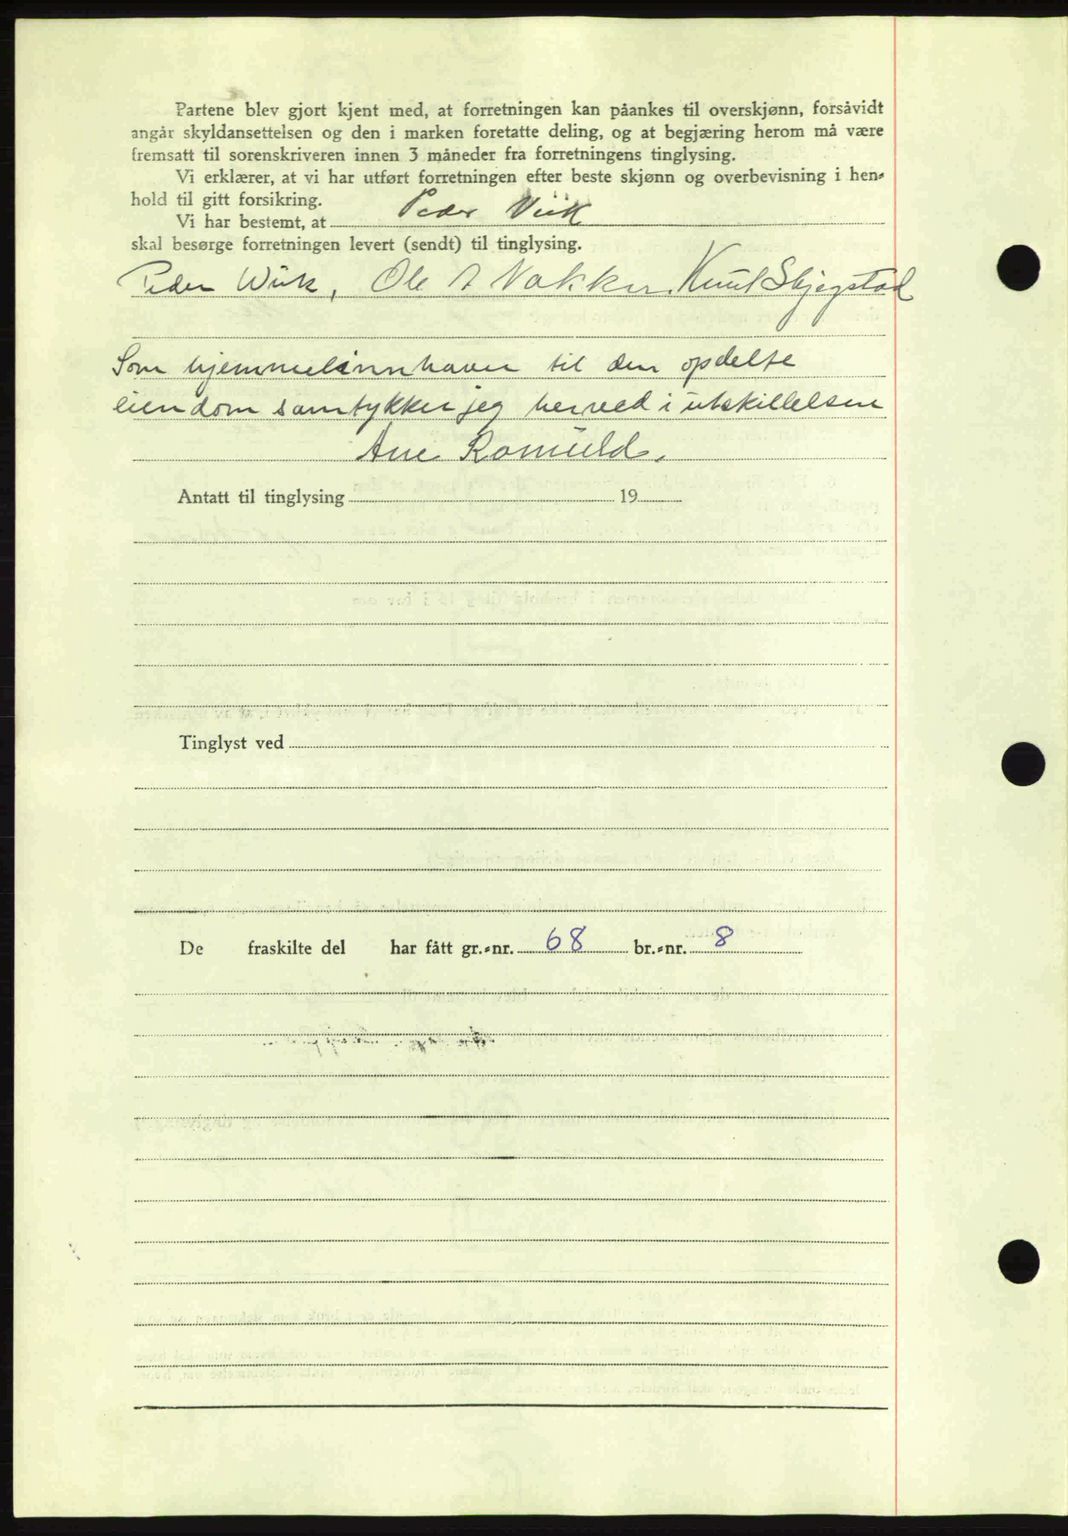 Partene blev gjort kjent med, at forretningen kan påankes til overskjønn, forsåvidt
angår skyldansettelsen og den i marken foretatte deling, og at begjæring herom må være
fremsatt til sorenskriveren innen 3 måneder fra forretningens tinglysing.
Vi erklærer, at vi har utført forretningen efter beste skjønn og overbevisning i hen-
hold til gitt forsikring.
Vi har bestemt, at Peder Wiik
skal besørge forretningen levert (sendt) til tinglysing.
Peder Wiik, Ole A Nakken, Knut Skjegstad
Som hjemmelinnhaver til den opdelte
eiendom samtykker jeg herved i utskillelsen
Ane Romuld.
Antatt til tinglysing 19
Tinglyst ved
De fraskilte del har fått gr.-nr. 68 br.-nr. 8